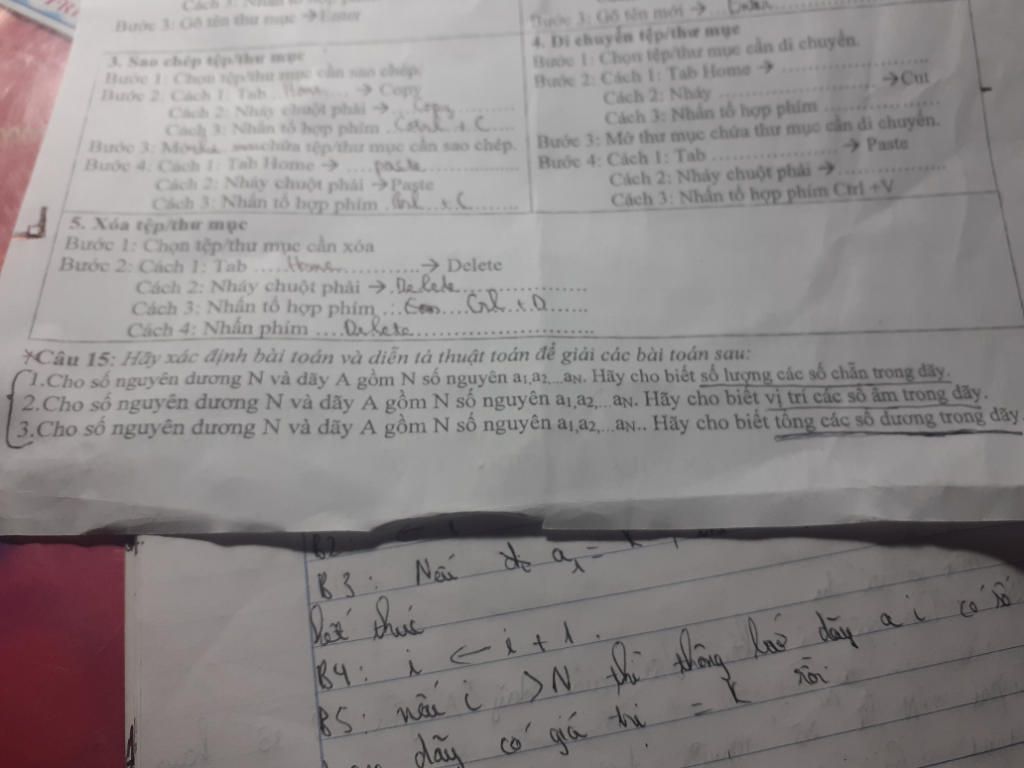 Bước 3: Gõ tên thư mục →Enter
3. Sao chép tệp/thư mục
Bước 1: Chọn tệp/thư mục cần sao chép.
Bước 2: Cách 1: Tab ...Home... → Copy
Cách 2: Nháy chuột phải → ...Copy...
Cách 3: Nhấn tổ hợp phím ... + C...
Bước 3: chứa tệp/thư mục cần sao chép.
Bước 4: Cách 1: Tab Home → ...paste...
Cách 2: Nháy chuột phải →Paste
Cách 3: Nhấn tổ hợp phím ... + C...
Bước 3: Gõ tên mới → ...
4. Di chuyển tệp/thư mục
Bước 1: Chọn tệp/thư mục cần di chuyển.
Bước 2: Cách 1: Tab Home → ...
Cách 2: Nháy ... →Cut
Cách 3: Nhấn tổ hợp phím ...
Bước 3: Mở thư mục chứa thư mục cần di chuyển.
Bước 4: Cách 1: Tab ... → Paste
Cách 2: Nháy chuột phải → ...
Cách 3: Nhấn tổ hợp phím Ctrl +V
5. Xóa tệp/thư mục
Bước 1: Chọn tệp/thư mục cần xóa
Bước 2: Cách 1: Tab ...Home... → Delete
Cách 2: Nháy chuột phải → Delete...
Cách 3: Nhấn tổ hợp phím ... Ctrl + D...
Cách 4: Nhấn phím ...Delete...
*Câu 15: Hãy xác định bài toán và diễn tả thuật toán để giải các bài toán sau:
1.Cho số nguyên dương N và dãy A gồm N số nguyên a1,a2,...aN. Hãy cho biết số lượng các số chẵn trong dãy.
2.Cho số nguyên dương N và dãy A gồm N số nguyên a1,a2,...aN. Hãy cho biết vị trí các số âm trong dãy.
3.Cho số nguyên dương N và dãy A gồm N số nguyên a1,a2,...aN.. Hãy cho biết tổng các số dương trong dãy
B2:
B3: Nếu ai = k
kết thúc
B4: i ← i + 1.
B5: nếu i > N thì thông báo dãy a i có số
dãy có giá trị = k rồi